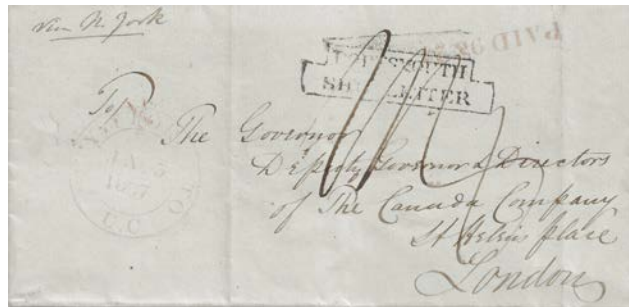 via N York
PAID
PORTSMOUTH
SHIP LETTER
To
The Governor
Deputy Governor & Directors
of The Canada Company
St Helens place
London
TO
U.C
1837